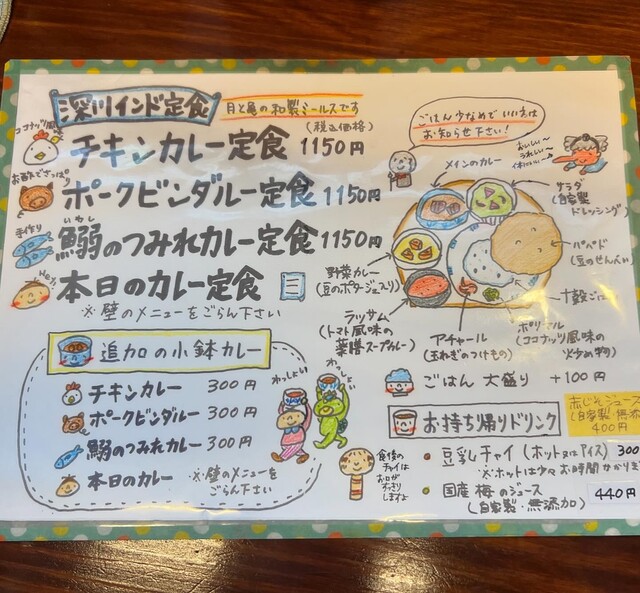 深川インド定食
月と亀の和製ミールスです
(税込価格)
ココナッツ風味
チキンカレー定食 1150円
お酢でさっぱり
ポークビンダルー定食 1150円
手作り
いわし
鰯のつみれカレー定食 1150円
本日のカレー定食
※壁のメニューをごらん下さい
追加の小鉢カレー
チキンカレー 300円
ポークビンダルー 300円
鰯のつみれカレー 300円
本日のカレー ※壁のメニューを
ごらん下さい
わっしょい
わっしょい
ごはん少なめでいい方は
お知らせ下さい!
おいしい~
うれしい~
メインのカレー
サラダ
(自家製
ドレッシング)
パパド
(豆のせんべい
十穀ごはん
ポリヤル
(ココナッツ風味の
炒め物)
アチャール
(玉ねぎのつけもの)
野菜カレー
(豆のポタージュ入り)
ラッサム
(トマト風味の
薬膳スープカレー)
ごはん 大盛り +100円
お持ち帰りドリンク
赤じそジュース
(自家製・無添
400円
豆乳チャイ (ホット又はアイス) 300
※ホットは少々お時間かかりま
国産梅のジュース
(自家製・無添加) 440円
食後の
チャイは
お口が
すっきり
しますよ